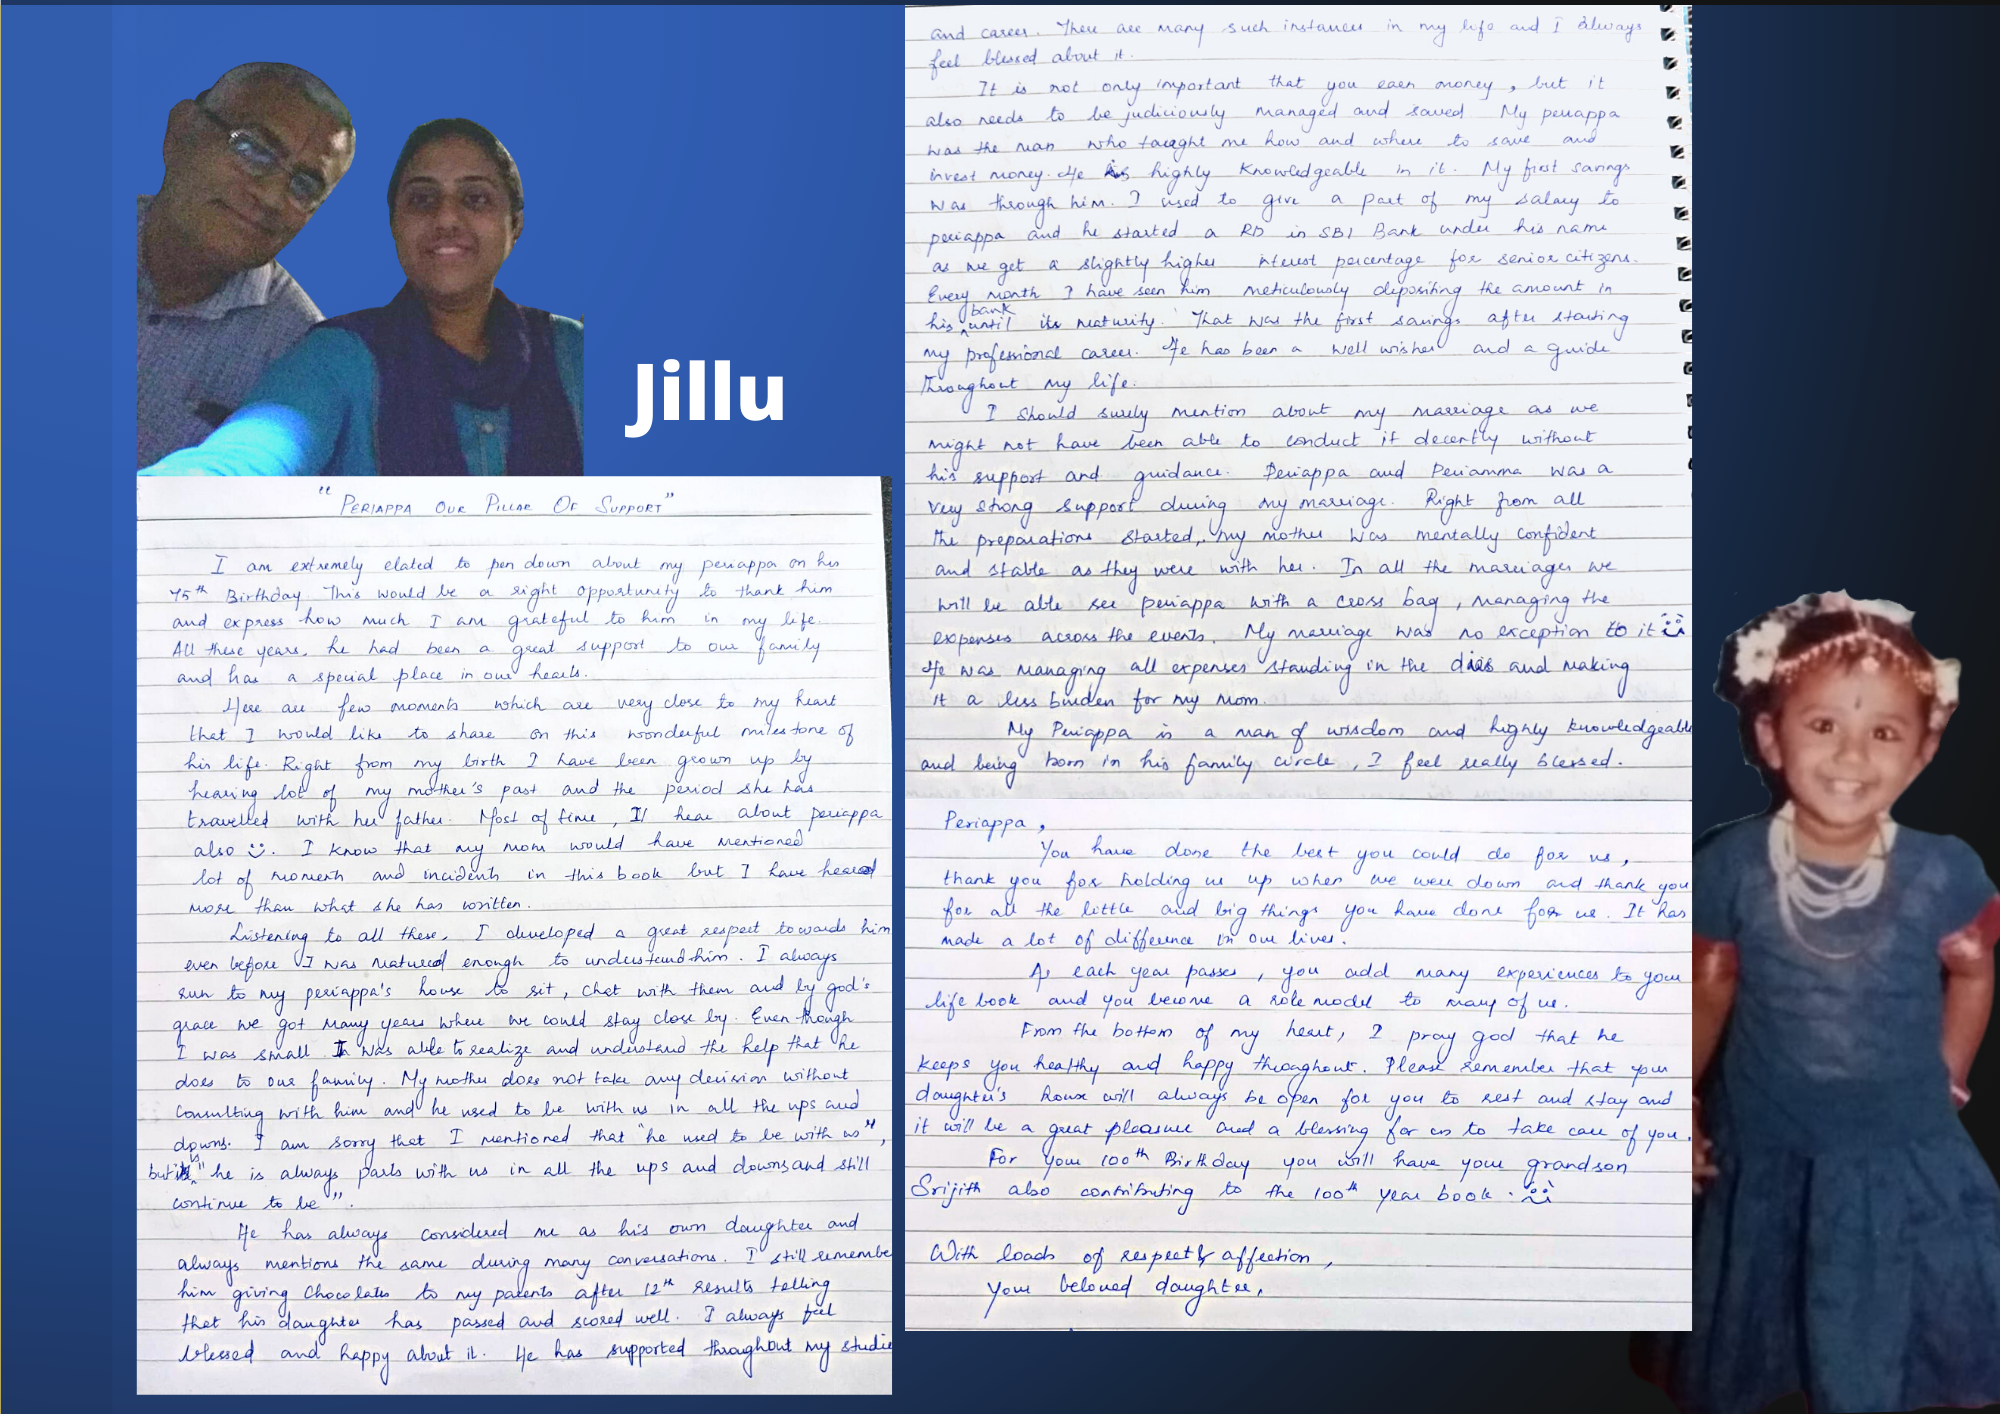 Jillu
"PERIAPPA OUR PILLAR OF SUPPORT"
I am extremely elated to pen down about my periappa on his
75th Birthday. This would be a right opportunity to thank him
and express how much I am grateful to him in my life.
All these years, he had been a great support to our family
and has a special place in our hearts.
Here are few moments which are very close to my heart
that I would like to share on this wonderful milestone of
his life. Right from my birth I have been grown up by
hearing lot of my mother's past and the period she has
travelled with her father. Most of time, I'll hear about periappa
also :). I know that my mom would have mentioned
lot of moments and incidents in this book but I have heared
more than what she has written.
Listening to all these, I developed a great respect towards him
even before I was matured enough to understand him. I always
run to my periappa's house to sit, chat with them and by god's
grace we got many years where we could stay close by. Even though
I was small I was able to realize and understand the help that he
does to our family. My mother does not take any decision without
consulting with him and he used to be with us in all the ups and
downs. I am sorry that I mentioned that "he used to be with us",
but its "he is always parts with us in all the ups and downs and still
continue to be".
He has always considered me as his own daughter and
always mentions the same during many conversations. I still remembe
him giving chocolates to my parents after 12th results telling
that his daughter has passed and scored well. I always feel
blessed and happy about it. He has supported throughout my studie
and career. There are many such instances in my life and I always
feel blessed about it.
It is not only important that you earn money, but it
also needs to be judiciously managed and saved. My periappa
was the man who taught me how and where to save and
invest money. He is highly knowledgeable in it. My first savings
was through him. I used to give a part of my salary to
periappa and he started a RD in SBI Bank under his name
as we get a slightly higher interest percentage for senior citizens.
Every month I have seen him meticulously depositing the amount in
his bank until its maturity. That was the first savings after starting
my professional career. He has been a well wisher and a guide
throughout my life.
I should surely mention about my marriage as we
might not have been able to conduct it decently without
his support and guidance. Periappa and Periamma was a
very strong support during my marriage. Right from all
the preparations started, my mother was mentally confident
and stable as they were with her. In all the marriages we
will be able see periappa with a cross bag, managing the
expenses across the events. My marriage was no exception to it :)
He was managing all expenses standing in the dias and making
it a less burden for my mom.
My Periappa is a man of wisdom and highly knowledgeable
and being born in his family circle, I feel really blessed.
Periappa,
You have done the best you could do for us,
thank you for holding us up when we were down and thank you
for all the little and big things you have done for us. It has
made a lot of difference in our lives.
As each year passes, you add many experiences to your
life book and you become a role model to many of us.
From the bottom of my heart, I pray god that he
keeps you healthy and happy throughout. Please remember that your
daughter's house will always be open for you to rest and stay and
it will be a great pleasure and a blessing for us to take care of you.
For your 100th Birthday you will have your grandson
Srijith also contributing to the 100th year book. :)
With loads of respect & affection,
Your beloved daughter,